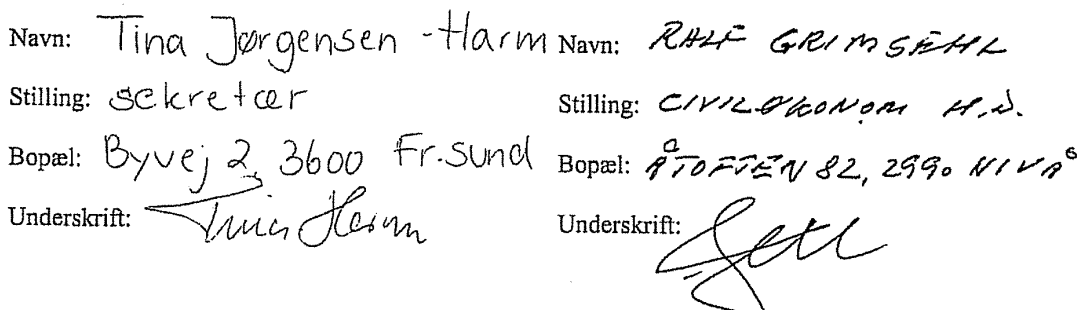 Navn: Tina Jørgensen-Harm
Stilling: sekretær
Bopæl: Byvej 2, 3600 Fr.sund
Underskrift: Tina Harm
Navn: RALF GRIMSEHL
Stilling: CIVILØKONOM H.D.
Bopæl: ÅTOFTEN 82, 2990 NIVÅ
Underskrift: